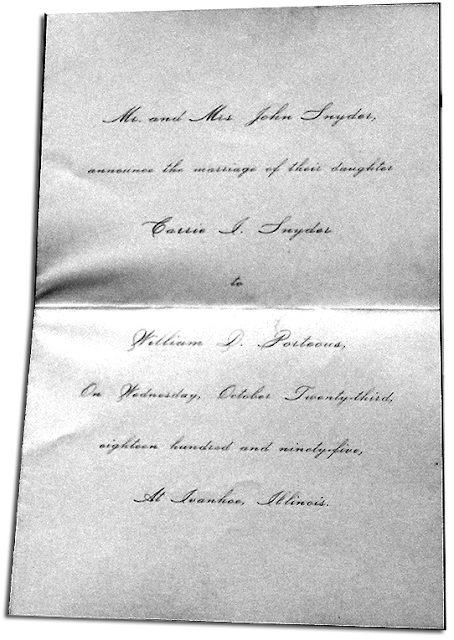 Mr. and Mrs John Snyder,
announce the marriage of their daughter
Carrie I. Snyder
to
William D. Porteous,
On Wednesday, October Twenty-third,
eighteen hundred and ninety-five,
At Ivanhoe, Illinois.